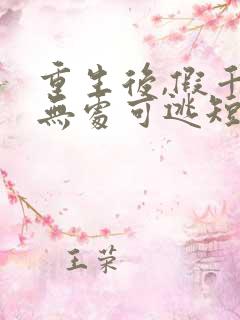 重生後,假千
無處可逃短
王荣